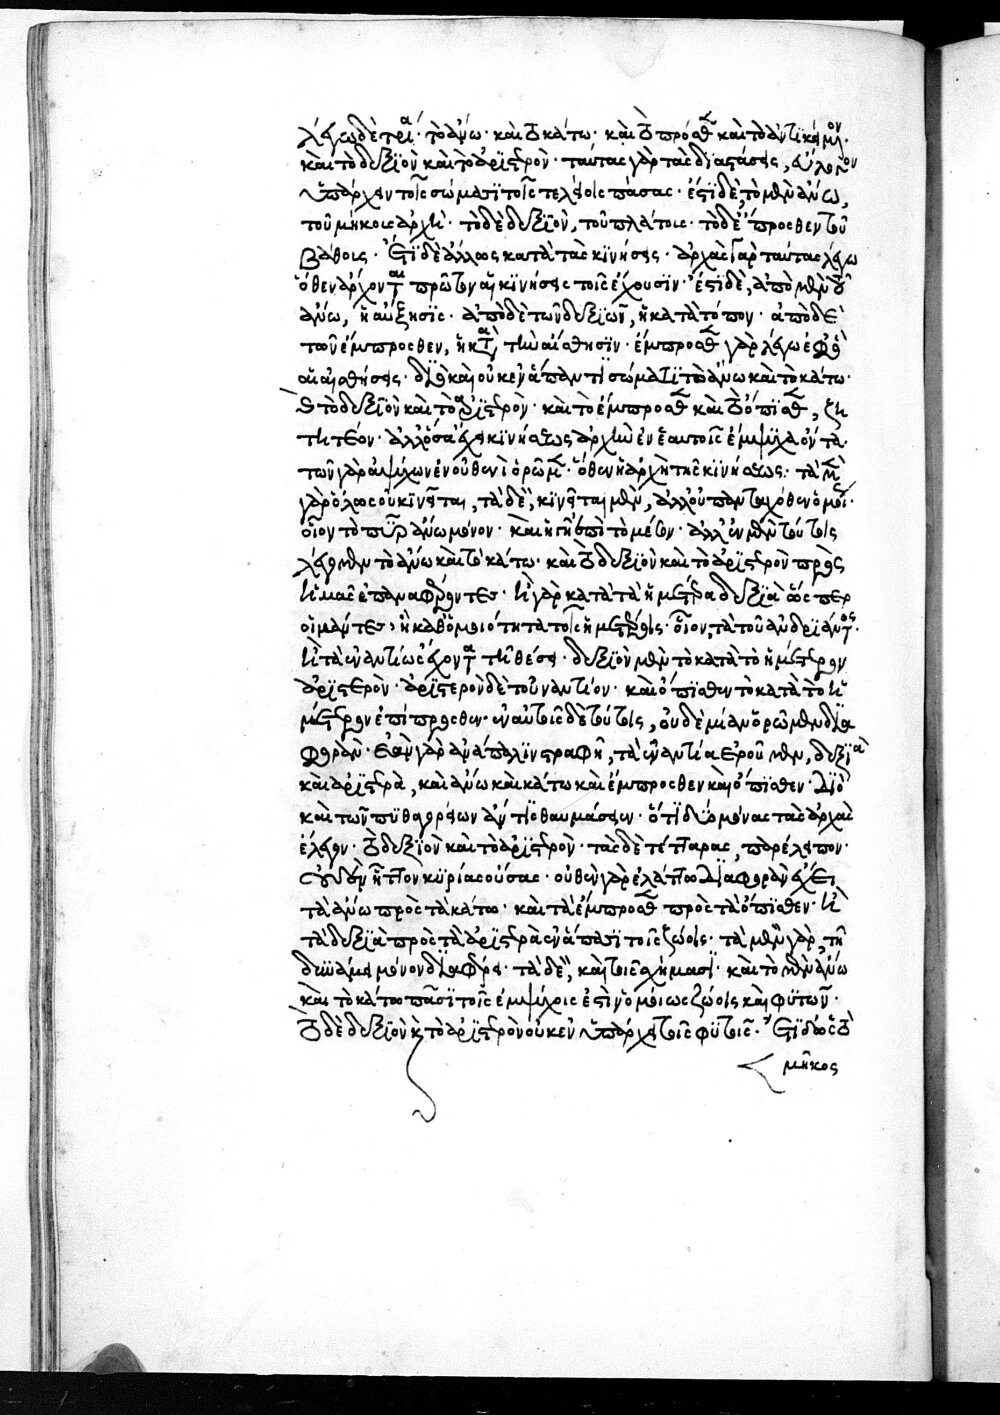 λέγω δὲ τρία· τὸ ἄνω· καὶ τὸ κάτω· καὶ τὸ πρόσθεν καὶ τὸ ἀντικείμενον·
καὶ τὸ δεξιὸν καὶ τὸ ἀριστερὸν· ταύτας γὰρ τὰς διαστάσεις, εὔλογον
ὑπάρχειν τοῖς σώμασι τοῖς τελείοις πάσας· ἔστι δὲ, τὸ μὲν ἄνω,
τοῦ μήκους ἀρχή· τὸ δὲ δεξιὸν, τοῦ πλάτους· τὸ δὲ ἔμπροσθεν τοῦ
βάθους· Ἔτι δὲ ἄλλως κατὰ τὰς κινήσεις· ἀρχὰς γὰρ ταύτας λέγω
ὅθεν ἄρχονται πρῶτον αἱ κινήσεις τοῖς ἔχουσιν· ἔστι δὲ, ἀπὸ μὲν τοῦ
ἄνω, ἡ αὔξησις· ἀπὸ δὲ τῶν δεξιῶν, ἡ κατὰ τόπον· ἀπὸ δὲ
τῶν ἔμπροσθεν, ἡ κατὰ τὴν αἴσθησιν· ἔμπροσθεν γὰρ λέγω ἐφ' ὃ
αἱ αἰσθήσεις· διὸ καὶ οὐκ ἐν ἅπαντι σώματι τὸ ἄνω καὶ τὸ κάτω·
καὶ τὸ δεξιὸν καὶ τὸ ἀριστερὸν· καὶ τὸ ἔμπροσθεν καὶ τὸ ὄπισθεν, ζη
τητέον· ἀλλ' ὅσα ἔχει κινήσεως ἀρχὴν ἐν ἑαυτοῖς ἔμψυχα ὄντα·
τῶν γὰρ ἀψύχων ἐν οὐθενὶ ὁρῶμεν· ὅθεν ἡ ἀρχὴ τῆς κινήσεως· τὰ μὲν
γὰρ ὅλως οὐ κινεῖται, τὰ δὲ, κινεῖται μὲν, ἀλλ' οὐ πανταχόθεν ὁμοίως·
οἷον τὸ πῦρ ἄνω μόνον· καὶ ἡ γῆ ἐπὶ τὸ μέσον· ἀλλ' ἐν μὲν τούτοις
λέγομεν τὸ ἄνω καὶ τὸ κάτω· καὶ τὸ δεξιὸν καὶ τὸ ἀριστερὸν πρὸς
ἡμᾶς ἐπαναφέροντες· ἢ γὰρ κατὰ τὰ ἡμέτερα δεξιὰ ὥσπερ
οἱ μάντεις, ἢ καθ' ὁμοιότητα τοῖς ἡμετέροις· οἷον, τὰ τοῦ ἀνδριάντος·
ἢ τὰ ἐναντίως ἔχοντα τῇ θέσει· δεξιὸν μὲν τὸ κατὰ τὸ ἡμέτερον
ἀριστερόν· ἀριστερὸν δὲ τοὐναντίον· καὶ ὄπισθεν τὸ κατὰ τὸ ἡ
μέτερον ἔμπροσθεν· ἐν αὐτοῖς δὲ τούτοις, οὐδὲ μίαν ὁρῶμεν δια
φοράν· ἐὰν γὰρ ἀνάπαλιν στραφῇ, τὰ ἐναντία ἐροῦμεν, δεξιὰ
καὶ ἀριστερὰ, καὶ ἄνω καὶ κάτω καὶ ἔμπροσθεν καὶ ὄπισθεν· Διὸ
καὶ τῶν πυθαγορείων ἄν τις θαυμάσειεν· ὅτι δύο μόνας τὰς ἀρχὰς
ἔλεγον· τὸ δεξιὸν καὶ τὸ ἀριστερὸν· τὰς δὲ τέτταρας, παρέλειπον·
οὐδὲν ἧττον κυρίας οὔσας· οὐθὲν γὰρ ἐλάττω διαφορὰν ἔχει
τὰ ἄνω πρὸς τὰ κάτω· καὶ τὰ ἔμπροσθεν πρὸς τὰ ὄπισθεν· ἢ
τὰ δεξιὰ πρὸς τὰ ἀριστερὰ ἐν ἅπασι τοῖς ζώοις· τὰ μὲν γὰρ, τῇ
δυνάμει μόνον διαφέρει· τὰ δὲ, καὶ τοῖς σχήμασι· καὶ τὸ μὲν ἄνω
καὶ τὸ κάτω πᾶσι τοῖς ἐμψύχοις ἐστὶν ὁμοίως ζώοις καὶ φυτοῖς·
τὸ δὲ δεξιὸν καὶ τὸ ἀριστερὸν οὐκ ἐνυπάρχει τοῖς φυτοῖς· Ἔτι δ' ὡς τὸ
μῆκος